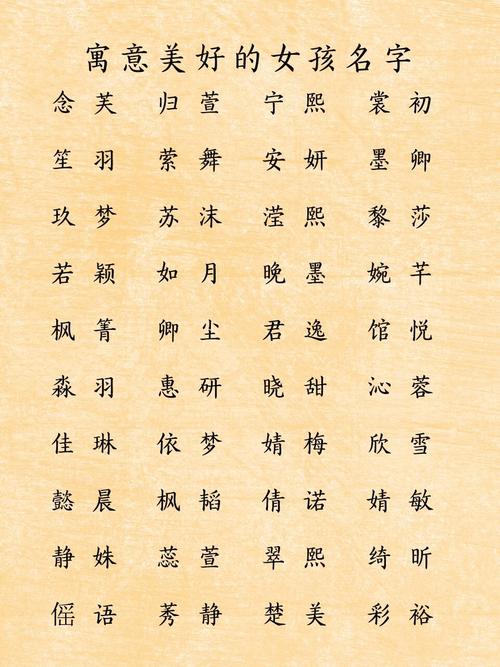 寓意美好的女孩名字
念芙 归萱 宁熙 裳初
笙羽 萦舞 安妍 墨卿
玖梦 苏沫 滢熙 黎莎
若颖 如月 晚墨 婉芊
枫箐 卿尘 君逸 馆悦
淼羽 惠研 晓甜 沁蓉
佳琳 依梦 婧梅 欣雪
懿晨 枫韬 倩诺 婧敏
静姝 蕊萱 翠熙 绮昕
傜语 秀静 楚美 彩裕